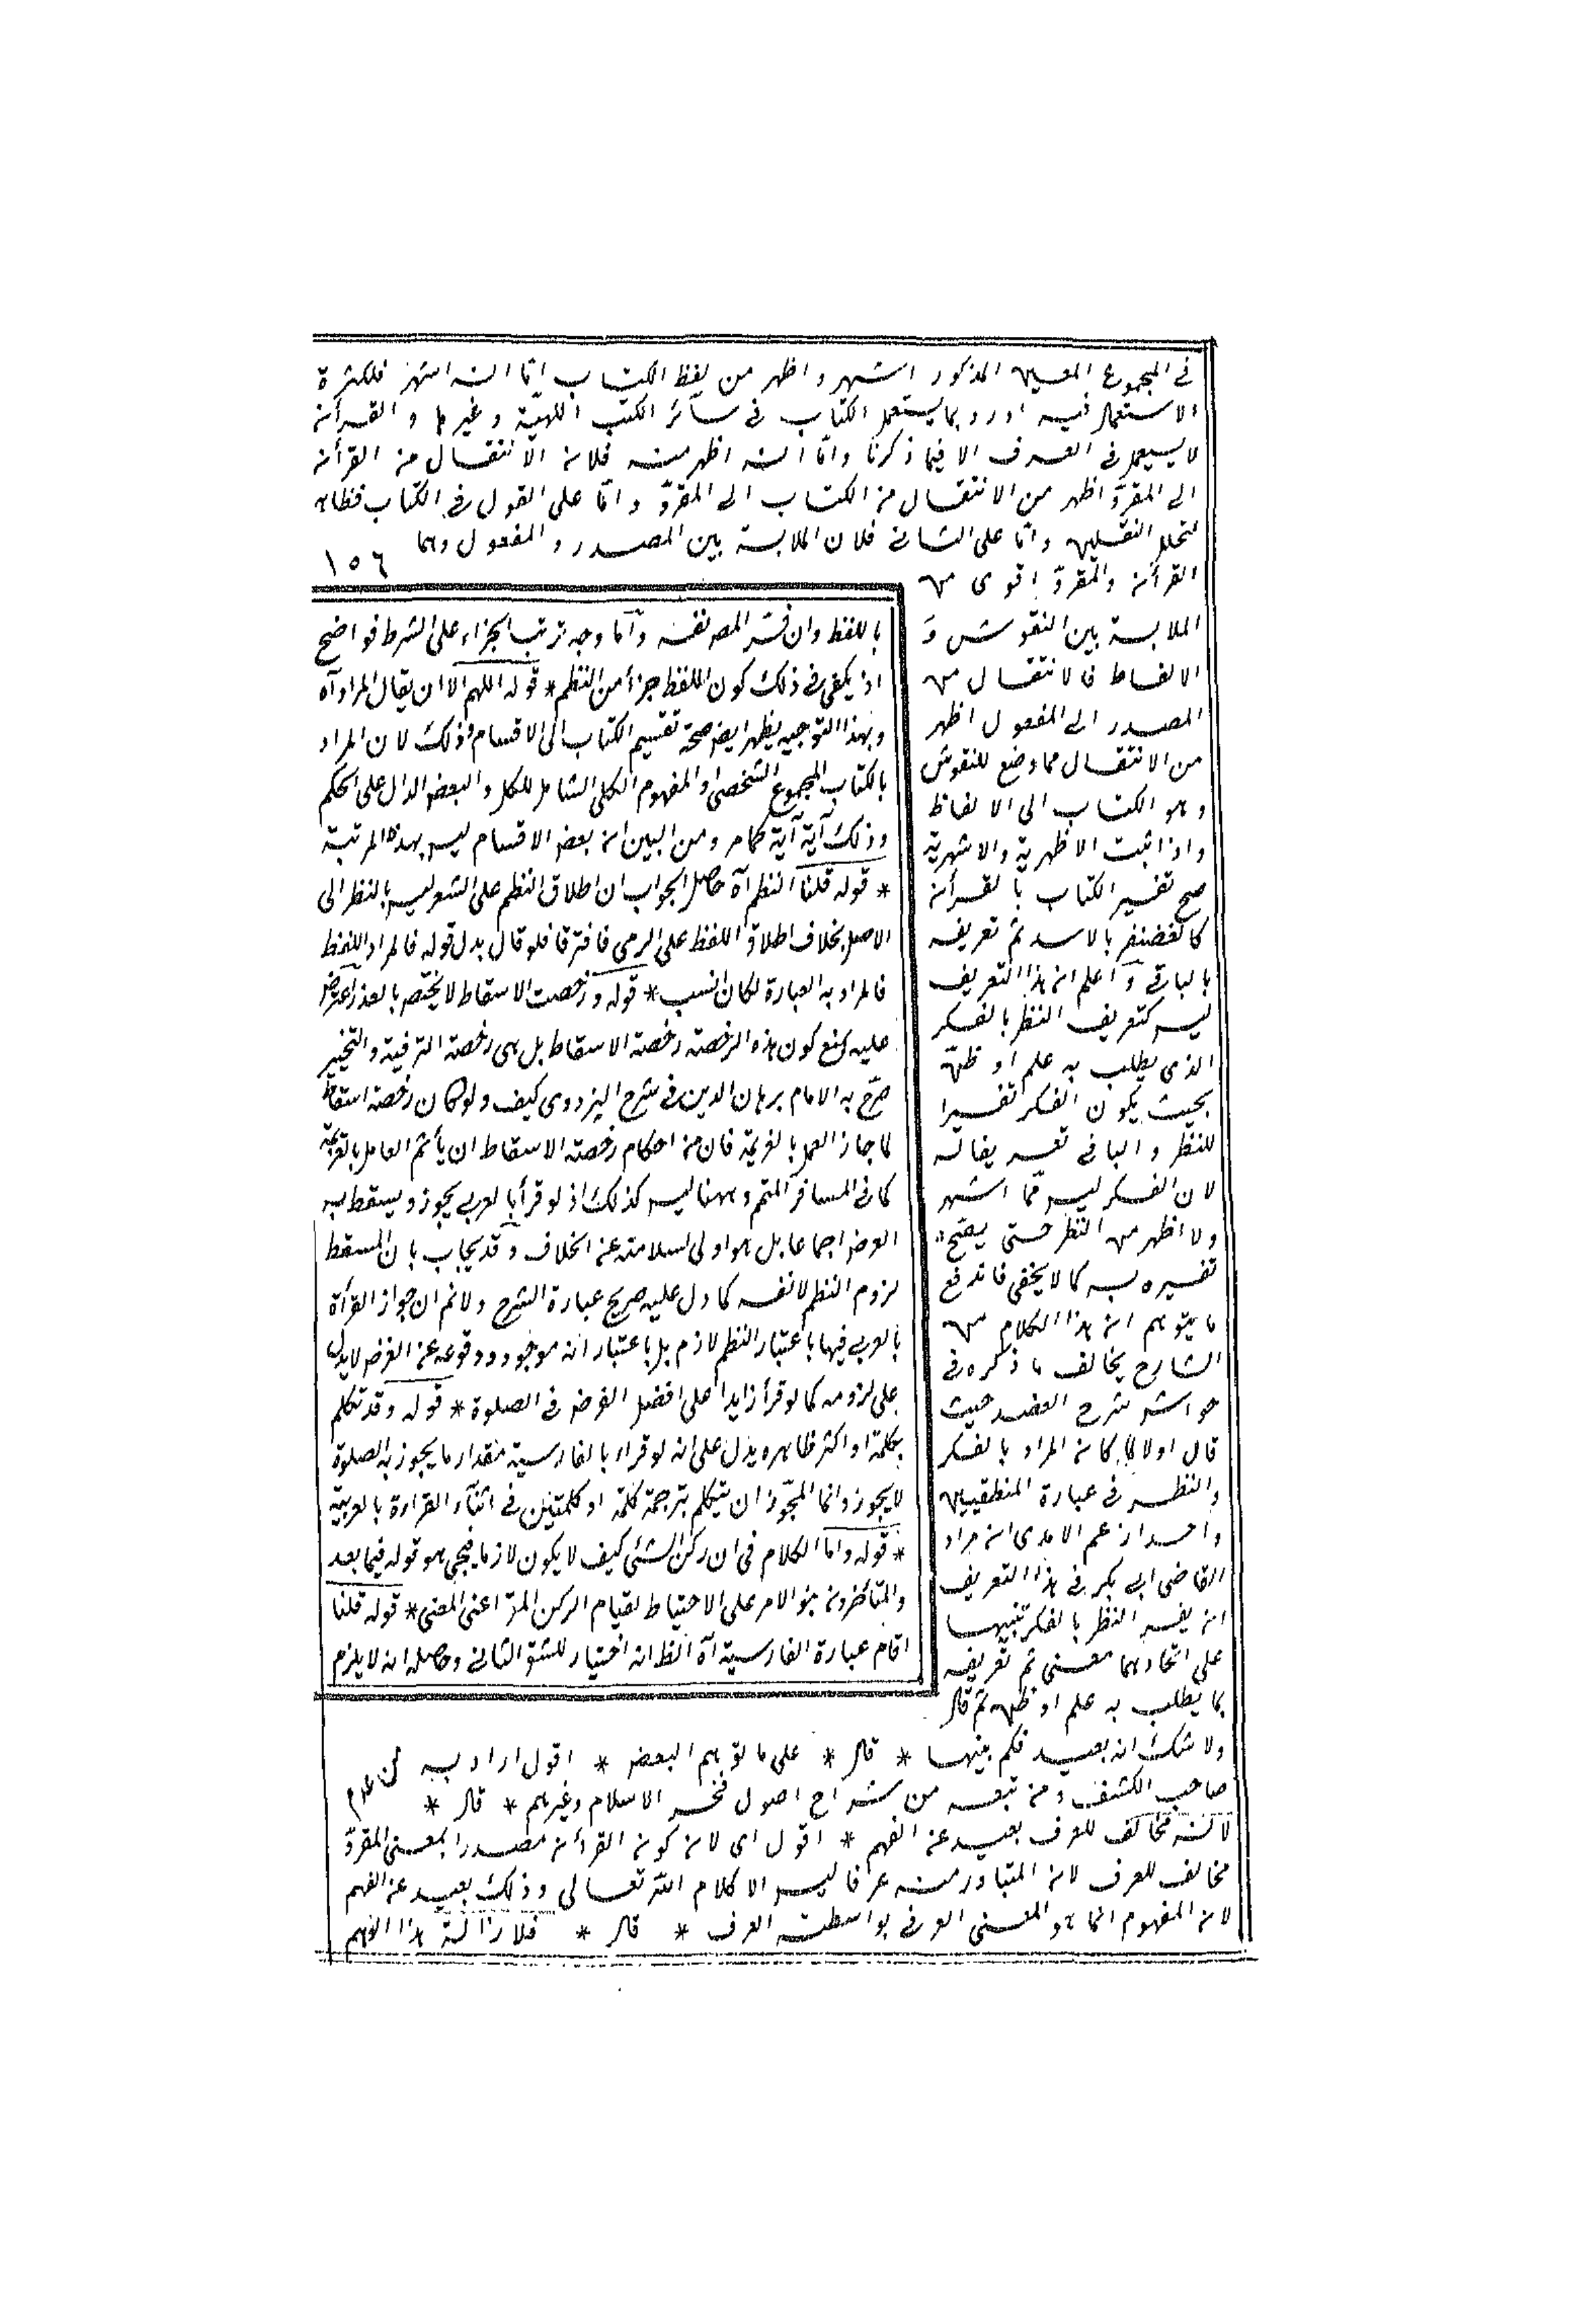 في المجموع المعين المذكور اشهر واظهر من لفظ الكتاب امّا انه اشهر فلكثرة
الاستعمال فيه اوردبما يستعمل الكتاب في سآئر الكتب الٰلهيّة وغيرها والقرأن
لا يستعمل في العرف الا فيما ذكرنا وامّا انه اظهر منه فلان الانتقال من القرأن
الى المقروّ اظهر من الانتقال من الكتاب الى المقروّ وامّا على القول في الكتاب فظاهر
لتخلل النقلين وامّا على الثاني فلان الملابسة بين المصدر والمفعول وهما
١٥٦
القرأن والمقروّ اقوى من
الملابسة بين النقوش و
الالفاظ فالانتقال من
المصدر الى المفعول اظهر
من الانتقال مما وضع للنقوش
وهو الكتاب الى الالفاظ
واذا ثبت الاظهرية والاشهرية
صح تفسير الكتاب بالقرأن
كالغضنفر بالاسد ثم تعريفه
بالباقي واعلم ان هذا التعريف
ليس كتعريف النظر بالفكر
الذى يطلب به علم او ظنّ
بحيث يكون الفكر تفسيرا
للنظر والباقي تعريفا له
لان الفكر ليس ممّا اشهر
ولا اظهر من النظر حتى يصحّ
تفسيره به كما لا يخفى فاندفع
ما يتوهم ان هذا الكلام من
الشارح يخالف ما ذكره في
حواشى شرح العضد حيث
قال اولا لما كان المراد بالفكر
والنظر في عبارة المنطقيين
واحدا زعم الامدى ان مراد
القاضى ابي بكر في هذا التعريف
ان يفسر النظر بالفكر تنبيها
على اتحادهما معنى ثم تعريفه
بما يطلب به علم او ظن ثم قال
ولا شك انه بعيد فكم بينهما * قال * على ما توهم البعض * اقول اراد به
صاحب الكشف ومن تبعه من شراح اصول فخر الاسلام وغيرهم * قال *
لانه مخالف للعرف بعيد عن الفهم * اقول اى لان كون القرأن مصدرا بمعنى المقروّ
مخالف للعرف لان المتبادر منه عرفا ليس الا كلام اللّه تعالى وذلك بعيد عن الفهم
لان المفهوم انما هو المعنى العرفي بواسطة العرف * قال * فلازالة هذا الفهم
باللفظ وان فسّر المصـ نفسه وامّا وجه ترتب الجزاء على الشرط فواضح
اذ يكفى في ذلك كون اللفظ جزأ من النظم * قوله اللهم الا ان يقال المراد آه
وبهذا التوجيه يظهر ايضـ صحة تقسيم الكتاب الى الاقسام وذلك لان المراد
بالكتاب المجموع الشخصى او المفهوم الكلى الشامل للكل والبعض الدال على الحكم
وذلك آية آية كما مر ومن البين ان بعض الاقسام ليس بهذه المرتبة
* قوله قلنا النظم آه حاصل الجواب ان اطلاق النظم على الشعر ليس بالنظر الى
الاصل بخلاف اطلاق اللفظ على الرمى فافترقا فلو قال بدل قوله فالمراد اللفظ
فالمراد به العبارة لكان انسب * قوله ورخصت الاسقاط لا تختص بالعذر اعترض
عليه بمنع كون هذه الرخصة رخصة الاسقاط بل هى رخصة الترفية والتخيير
صرّح به الامام برهان الدين في شرح البزدوى كيف ولو كان رخصة اسقاط
لما جاز العمل بالعزيمة فان من احكام رخصة الاسقاط ان يأثم العامل بالعزيمة
كما في المسافر المتم وههنا ليس كذلك اذ لو قرأ بالعربى يجوز ويسقط به
الفرض اجماعا بل هو اولى لسلامته عن الخلاف وقد يجاب بان المسقط
لزوم النظم لا نفسه كما دل عليه صريح عبارة الشرح ولانم ان جواز القرأة
بالعربي فيها باعتبار النظم لازم بل باعتبار انه موجود ووقوعه عن الفرض لا يدل
على لزومه كما لو قرأ زايدا على افضل الفرض في الصلوة * قوله وقد تتكلم
بكلمة او اكثر ظاهره يدل على انه لو قراء بالفارسية مقدار ما يجوز به الصلوة
لا يجوز وانما المجوّز ان يتكلم بترجمة كلمة او كلمتين في اثنآء القراءة بالعربية
* قوله واما الكلام في ان ركن الشئ كيف لا يكون لازما فيجئ هو قوله فيما بعد
والمتأخرون بنوا الامر على الاحتياط لقيام الركن اعنى المعنى * قوله قلنا
اقام عبارة الفارسية آه الظ انه اختيار للشق الثاني وحاصله انه لا يلزم